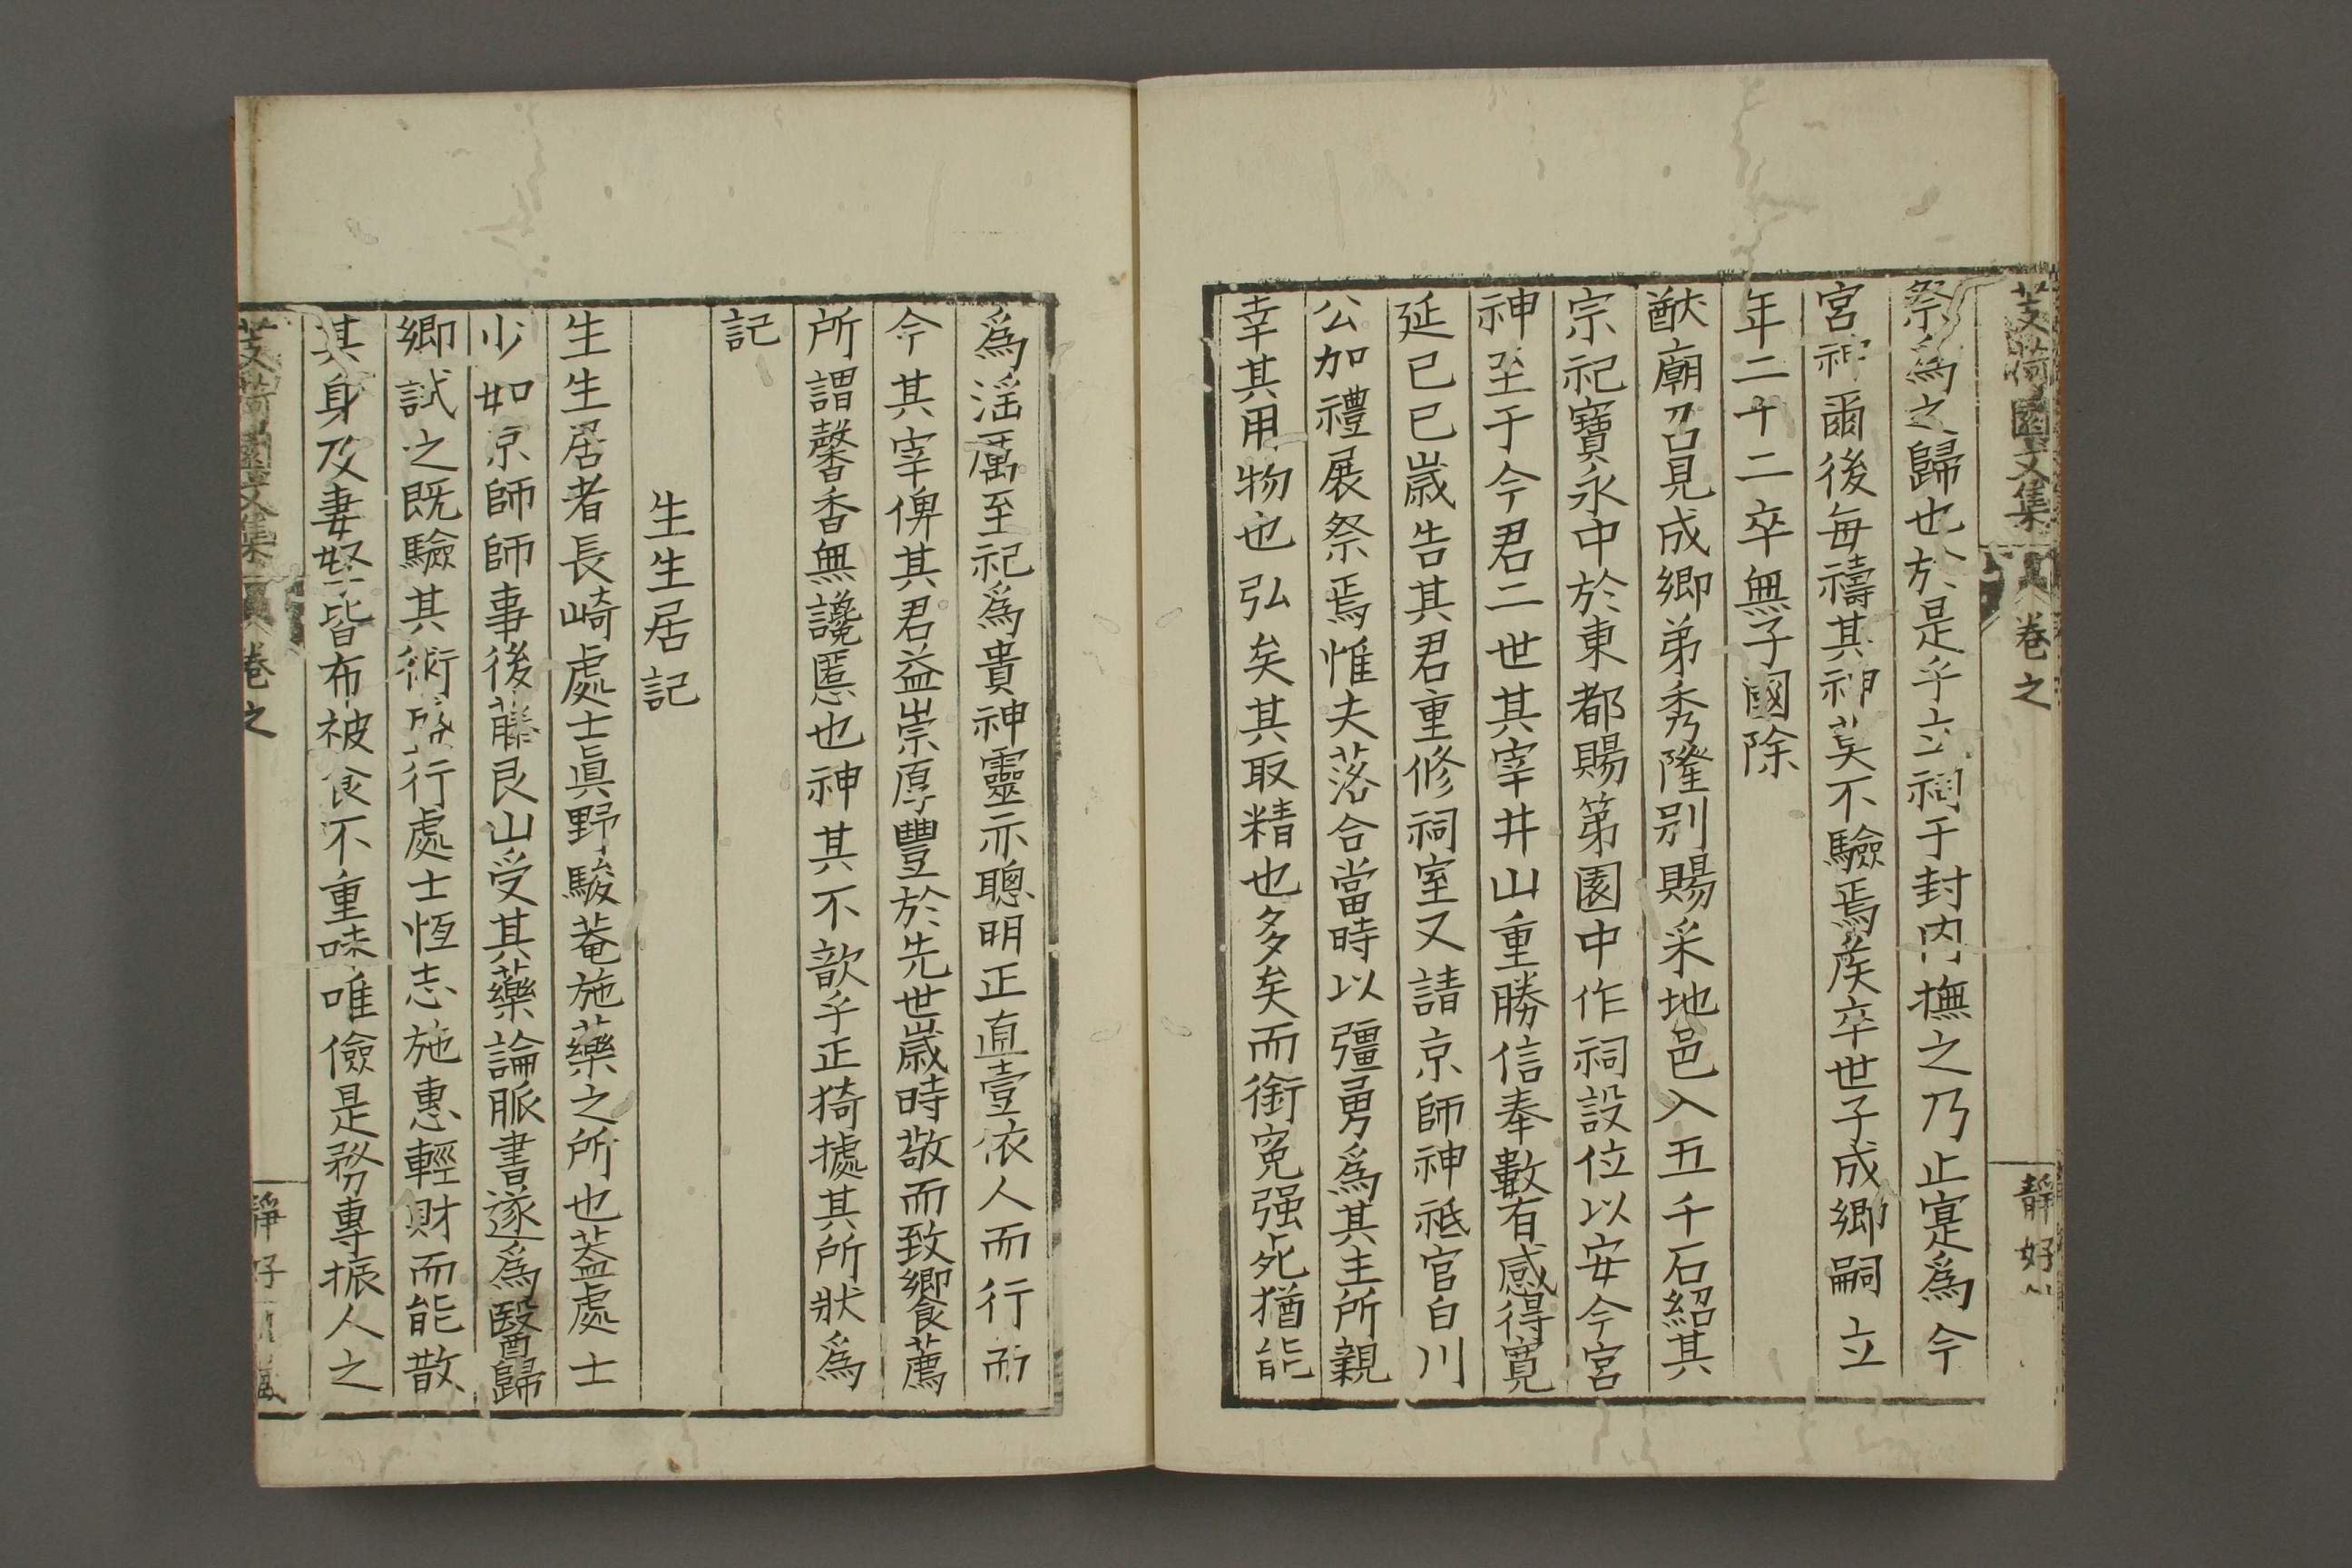 芰荷園文集 卷之 靜好
祭爲之歸也於是乎立祠于封内撫之乃止寔爲今
宮神爾後每禱其神莫不驗焉矦卒世子成卿嗣立
年二十二卒無子國除
猷廟召見成卿弟秀隆别賜采地邑入五千石紹其
宗祀寶永中於東都賜第園中作祠設位以安今宮
神至于今君二世其宰井山重勝信奉數有感得寛
延己巳歲告其君重修祠室又請京師神祗官白川
公加禮展祭焉惟夫落合當時以彊勇爲其主所親
幸其用物也弘矣其取精也多矣而銜寃强死猶能
爲滛厲至祀爲貴神靈示聰明正直壹依人而行而
今其宰俾其君益崇厚豐於先世歲時敬而致饗薦
所謂馨香無讒慝也神其不歆乎正猗摭其所狀爲
記
生生居記
生生居者長崎處士眞野駿菴施藥之所也葢處士
少如京師師事後藤艮山受其藥論脈書遂爲醫歸
鄉試之既驗其術盛行處士恆志施惠輕財而能散
其身及妻孥皆布被食不重味唯儉是務專振人之
芰荷園文集 卷之 靜好